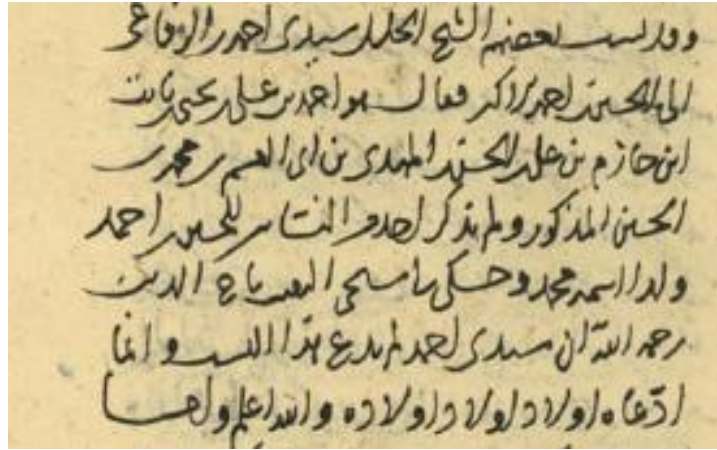 وقد نسب بعضهم الشيخ الجليل سيدي احمد بن الرفاعي
الى الحسين بن احمد الاكبر فقال هو احمد بن علي بن يحيى بن ثابت
ابن حازم بن علي بن الحسن بن المهدي بن ابي القسم بن محمد بن
الحسين المذكور ولم يذكر احد من النساب للحسين بن احمد
ولدا اسمه محمد وحكى لي الشيخ النقيب تاج الدين
رحمه الله ان سيدي احمد لم يدع هذا النسب وانما
ادعاه اولاد اولاد اولاده والله اعلم ولما